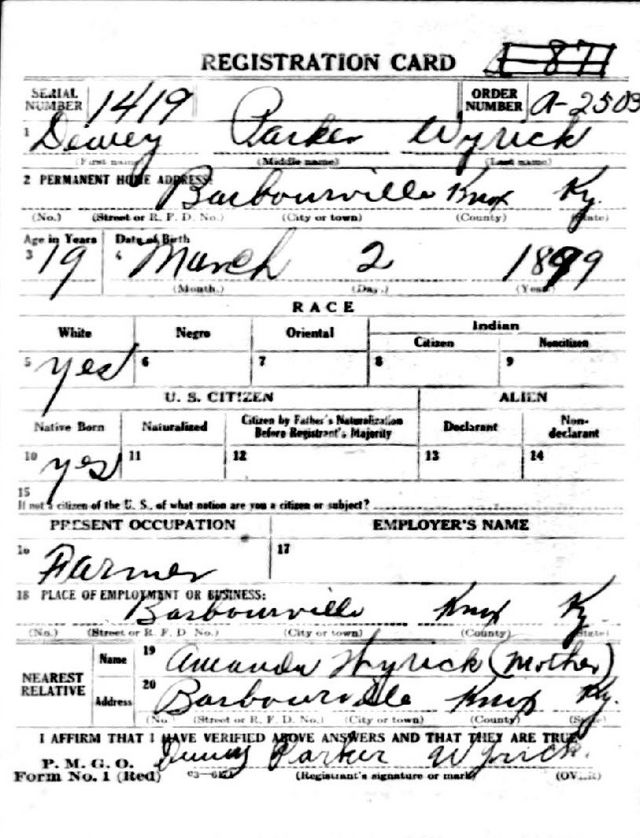 REGISTRATION CARD
SERIAL NUMBER 1419 ORDER NUMBER A-2503
1 Dewey Parker Wyrick
(First name) (Middle name) (Last name)
2 PERMANENT HOME ADDRESS: Barbourville Knox Ky.
(No.) (Street or R. F. D. No.) (City or town) (County) (State)
Age in Years Date of Birth
3 19 4 March 2 1899
(Month.) (Day.) (Year.)
RACE
White Negro Oriental Indian
Citizen Noncitizen
5 yes 6 7 8 9
U. S. CITIZEN ALIEN
Native Born Naturalized Citizen by Father's Naturalization Before Registrant's Majority Declarant Non-declarant
10 yes 11 12 13 14
15
If not a citizen of the U. S., of what nation are you a citizen or subject?
PRESENT OCCUPATION EMPLOYER'S NAME
16 Farmer 17
18 PLACE OF EMPLOYMENT OR BUSINESS:
Barbourville Knox Ky
(No.) (Street or R. F. D No.) (City or town) (County) (State)
NEAREST RELATIVE Name 19 Amanda Wyrick (Mother)
Address 20 Barbourville Knox Ky.
(No.) (Street or R. F. D. No.) (City or town) (County) (State)
I AFFIRM THAT I HAVE VERIFIED ABOVE ANSWERS AND THAT THEY ARE TRUE
P. M. G. O. Dewey Parker Wyrick.
Form No. 1 (Red) (Registrant's signature or mark) (OVER)